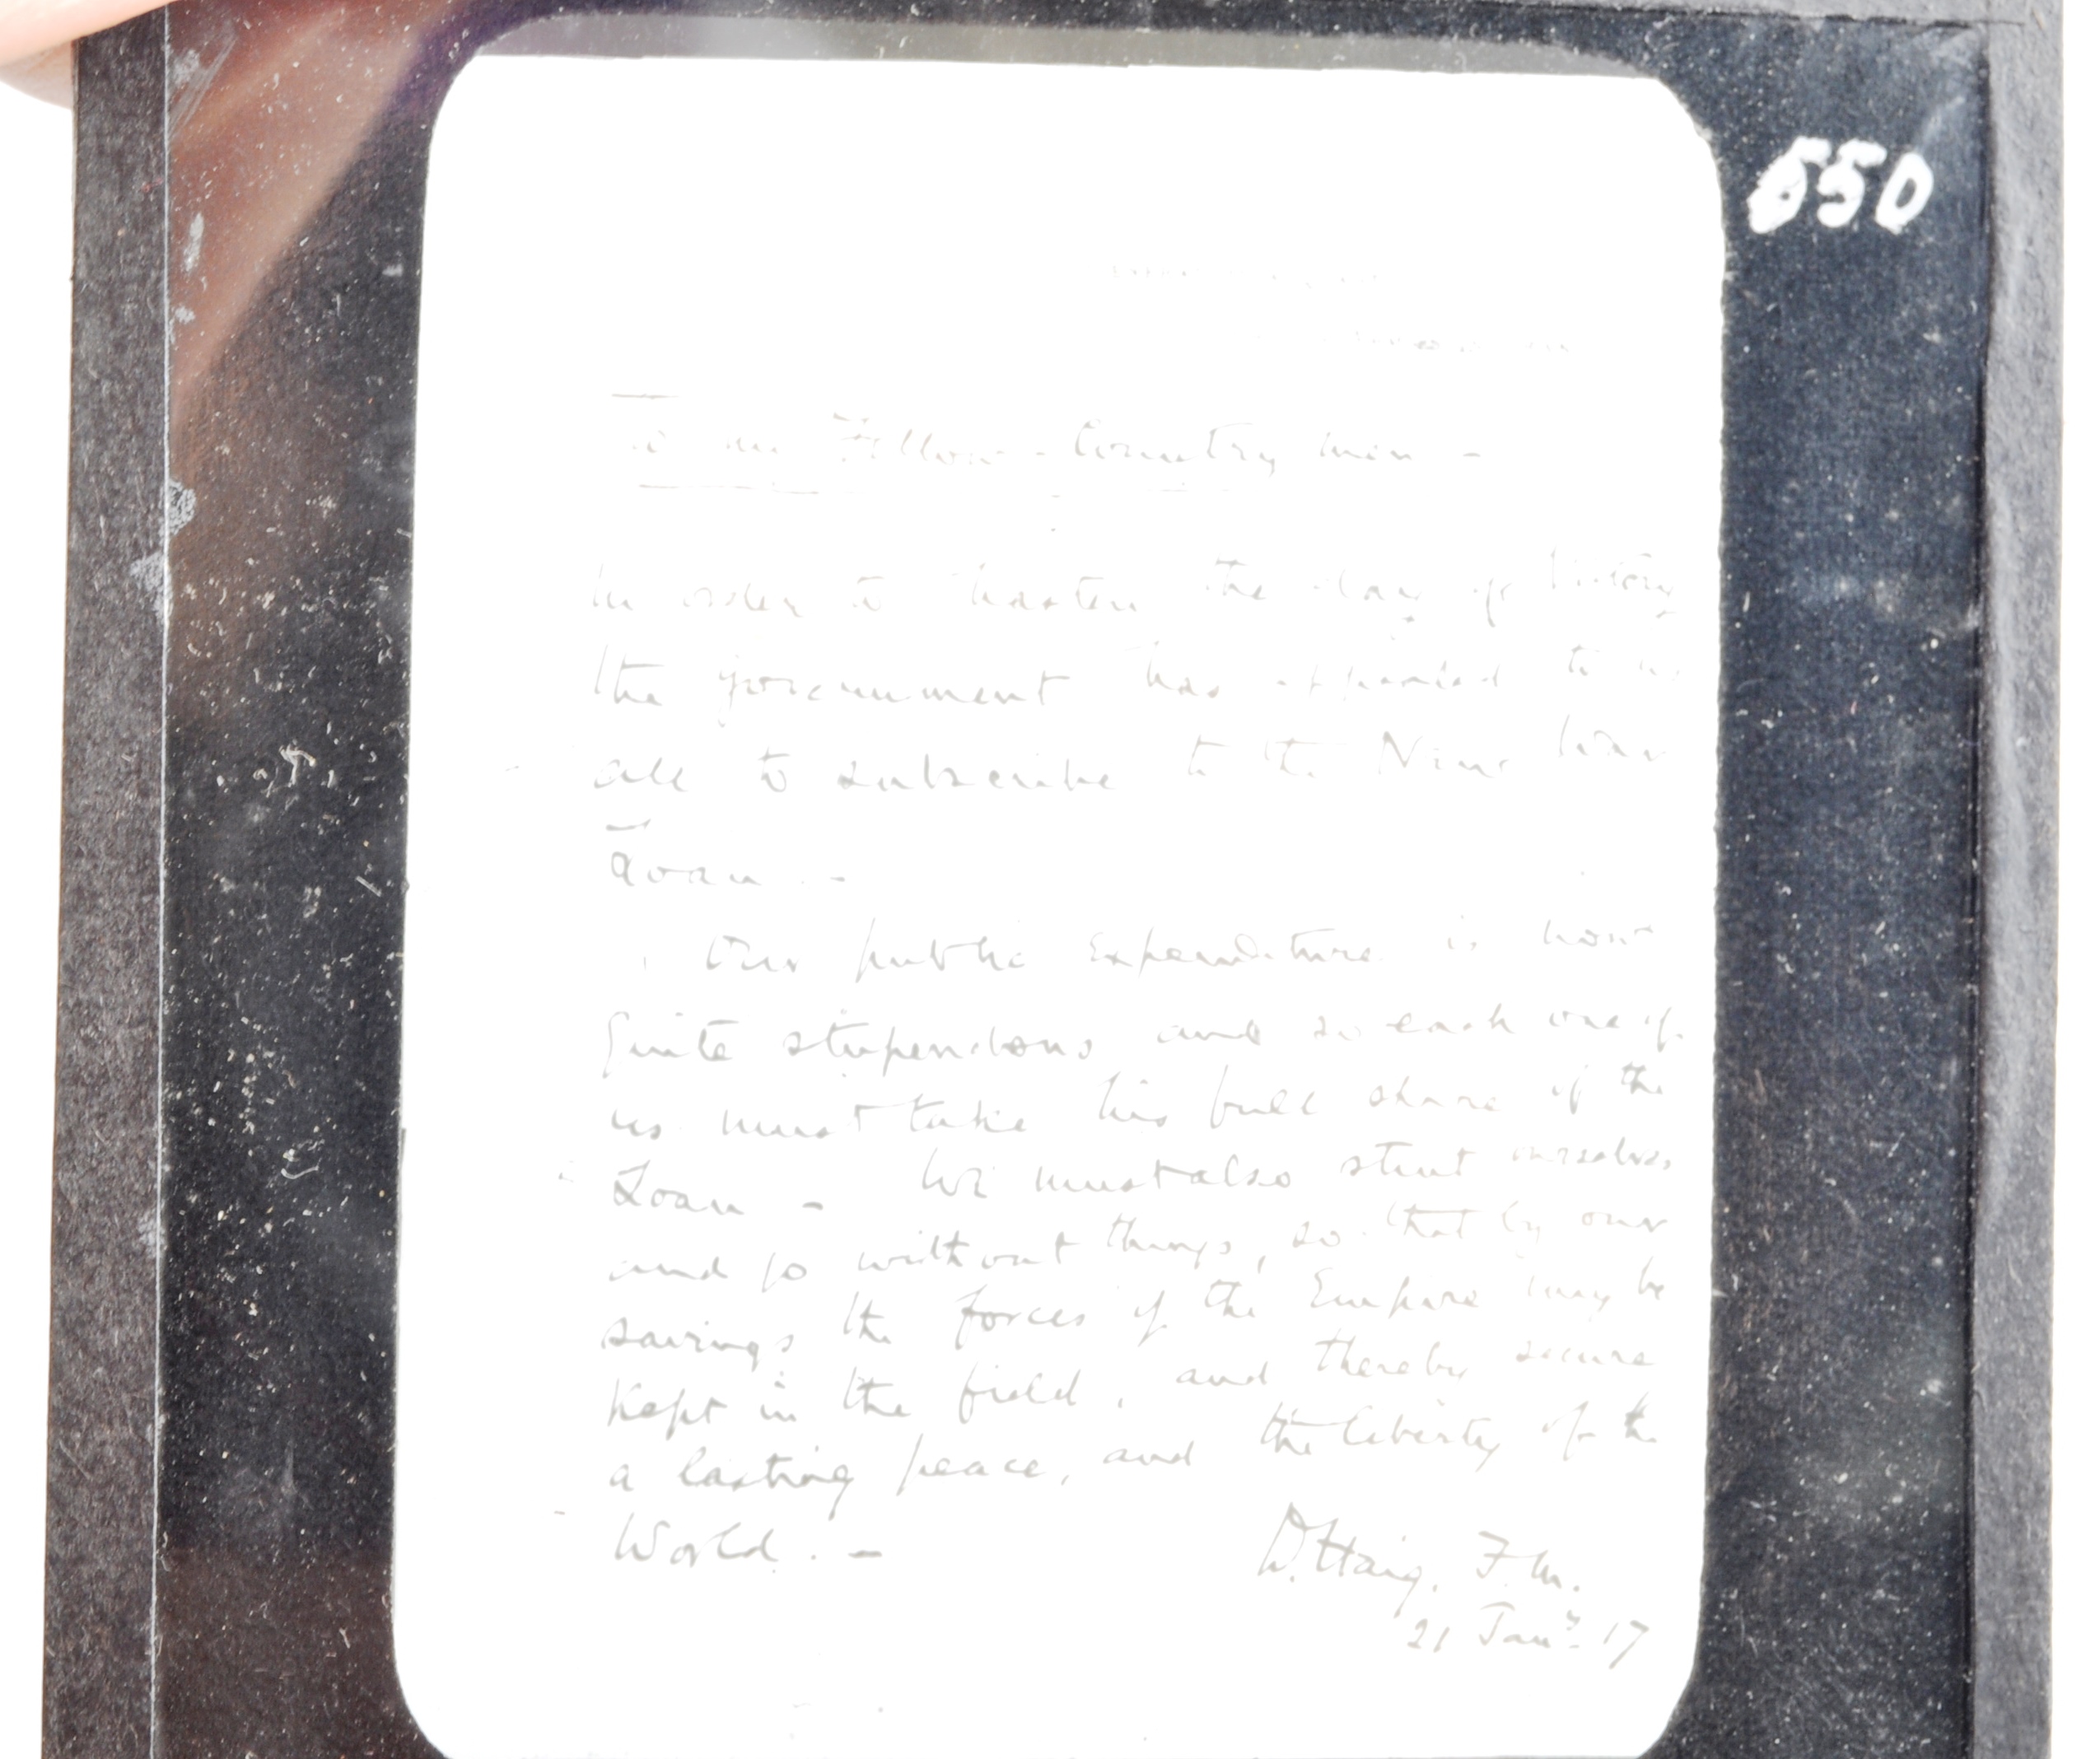 550
To my Fellow-Country men -
In order to hasten the day of Victory
the Government has appealed to us
all to subscribe to the New War
Loan. -
Our public Expenditure is now
quite stupendous and so each one of
us must take his full share of the
Loan - We must also stint ourselves
and go without things, so that by our
savings the forces of the Empire may be
kept in the field, and thereby secure
a lasting peace, and the liberty of the
World. -
D. Haig. F.M.
21 Jany. 17